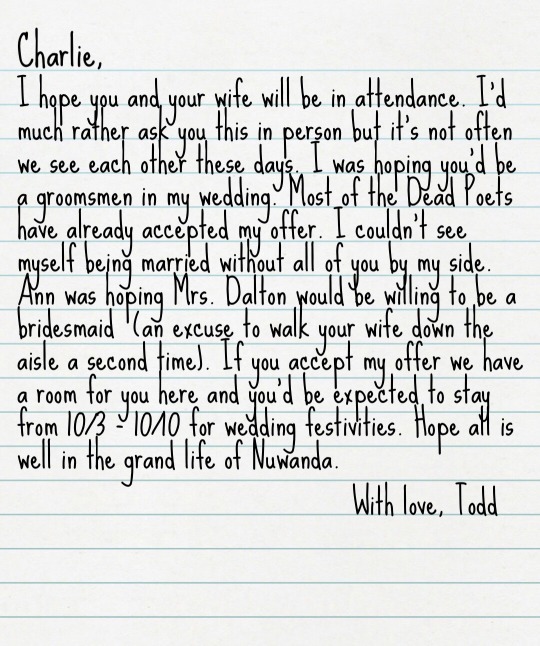 Charlie,
I hope you and your wife will be in attendance. I'd
much rather ask you this in person but it's not often
we see each other these days. I was hoping you'd be
a groomsmen in my wedding. Most of the Dead Poets
have already accepted my offer. I couldn't see
myself being married without all of you by my side.
Ann was hoping Mrs. Dalton would be willing to be a
bridesmaid (an excuse to walk your wife down the
aisle a second time). If you accept my offer we have
a room for you here and you'd be expected to stay
from 10/3 - 10/10 for wedding festivities. Hope all is
well in the grand life of Nuwanda.
With love, Todd